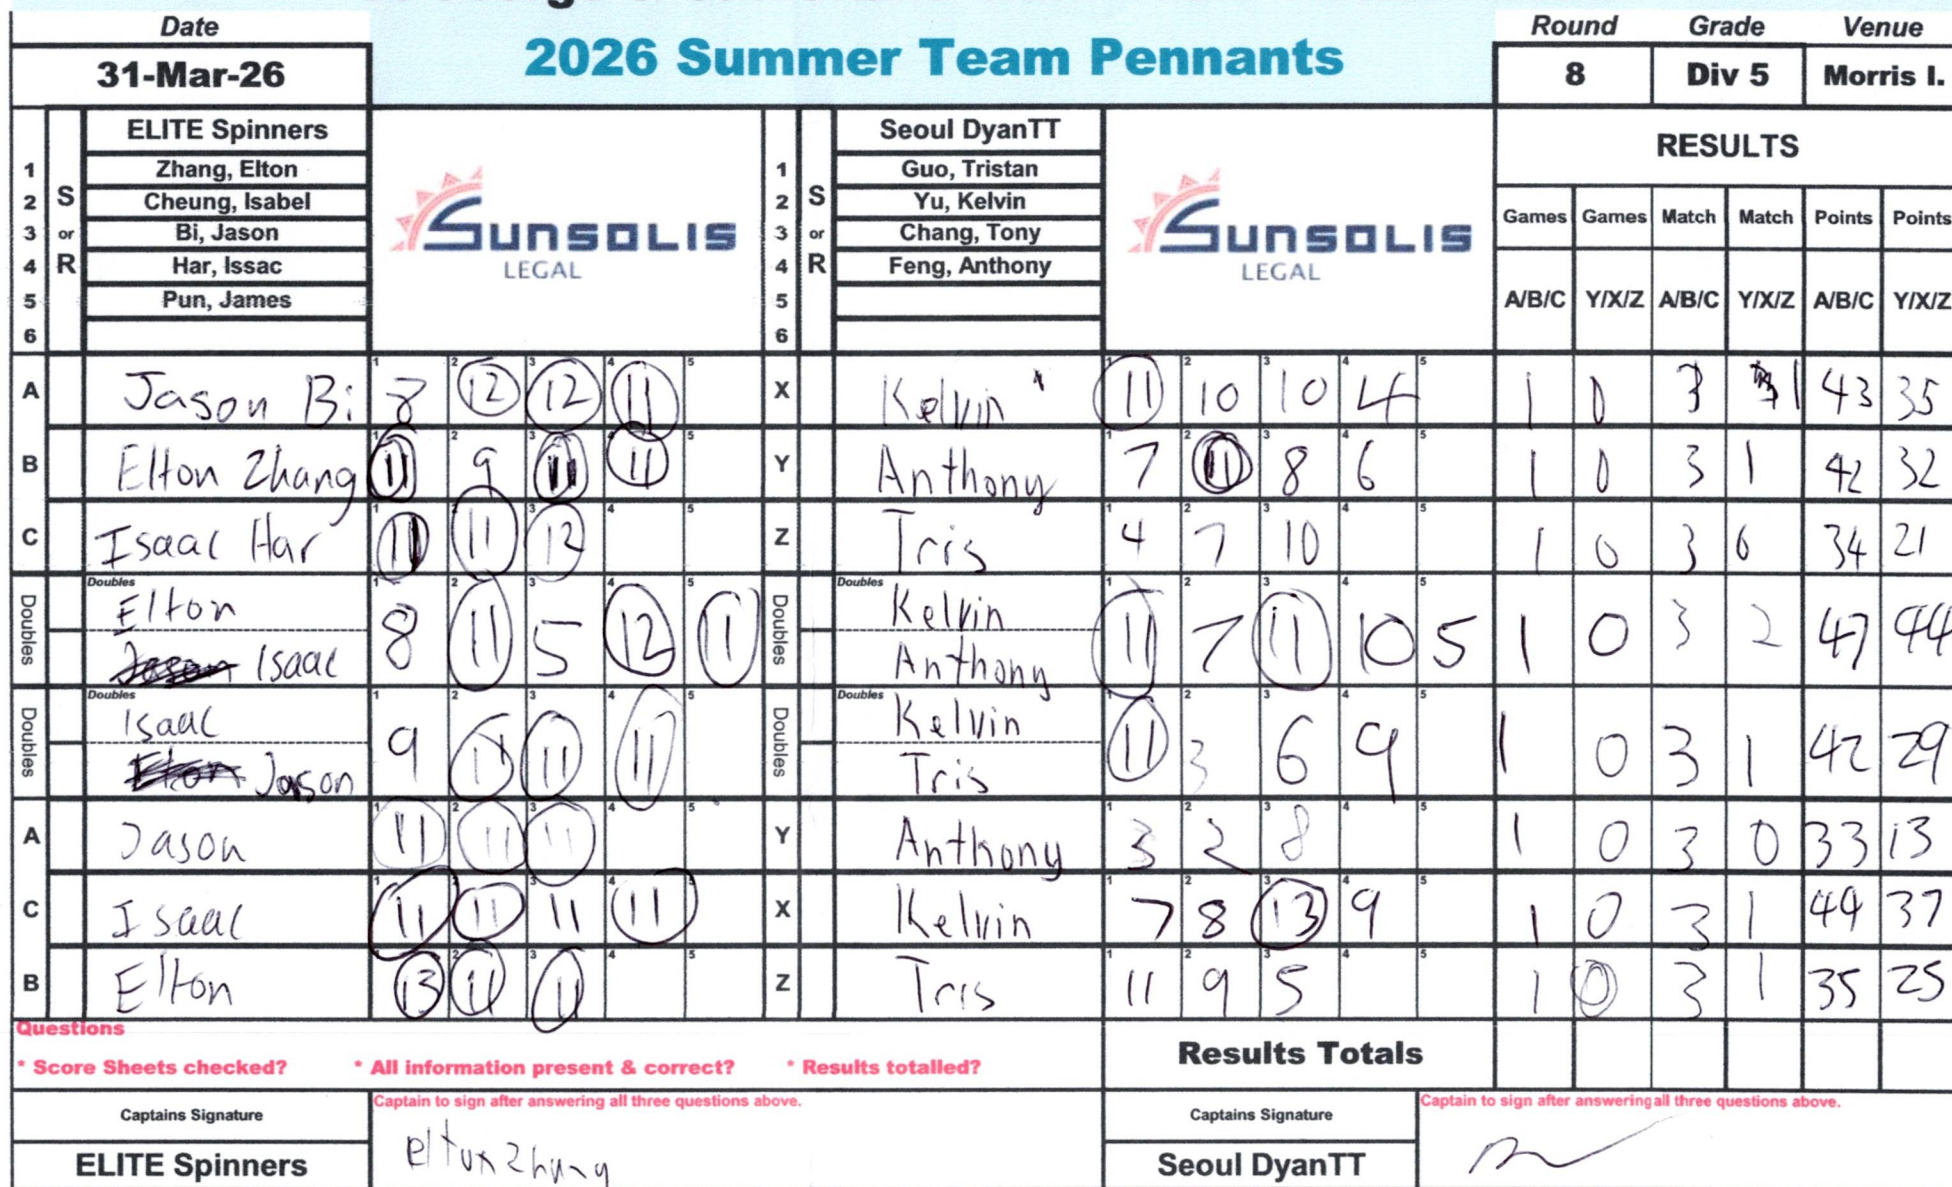 Date
31-Mar-26
2026 Summer Team Pennants
Round Grade Venue
8 Div 5 Morris I.
ELITE Spinners
1 Zhang, Elton
2 Cheung, Isabel
3 Bi, Jason
4 Har, Issac
5 Pun, James
6
S or R
SUNSOLIS
LEGAL
Seoul DyanTT
1 Guo, Tristan
2 Yu, Kelvin
3 Chang, Tony
4 Feng, Anthony
5
6
S or R
SUNSOLIS
LEGAL
RESULTS
Games Games Match Match Points Points
A/B/C Y/X/Z A/B/C Y/X/Z A/B/C Y/X/Z
A Jason Bi 1 8 2 12 3 12 4 11 5 X Kelvin 1 11 2 10 3 10 4 4 5 1 0 3 1 43 35
B Elton Zhang 1 11 2 9 3 11 4 11 5 Y Anthony 1 7 2 11 3 8 4 6 5 1 0 3 1 42 32
C Isaac Har 1 11 2 11 3 12 4 5 Z Tris 1 4 2 7 3 10 4 5 1 0 3 0 34 21
Doubles Doubles Elton 1 8 2 11 3 5 4 12 5 11 Doubles Doubles Kelvin 1 11 2 7 3 11 4 10 5 5 1 0 3 2 47 44
Isaac Anthony
Doubles Doubles Isaac 1 9 2 11 3 11 4 11 5 Doubles Doubles Kelvin 1 11 2 3 3 6 4 9 5 1 0 3 1 42 29
Jason Tris
A Jason 1 11 2 11 3 11 4 5 Y Anthony 1 3 2 2 3 8 4 5 1 0 3 0 33 13
C Isaac 1 11 2 11 3 11 4 11 5 X Kelvin 1 7 2 8 3 13 4 9 5 1 0 3 1 44 37
B Elton 1 13 2 11 3 11 4 5 Z Tris 1 11 2 9 3 5 4 5 1 0 3 1 35 25
Questions
* Score Sheets checked? * All information present & correct? * Results totalled?
Results Totals
Captains Signature
Captain to sign after answering all three questions above.
elton zhang
ELITE Spinners
Captains Signature
Captain to sign after answering all three questions above.
Seoul DyanTT